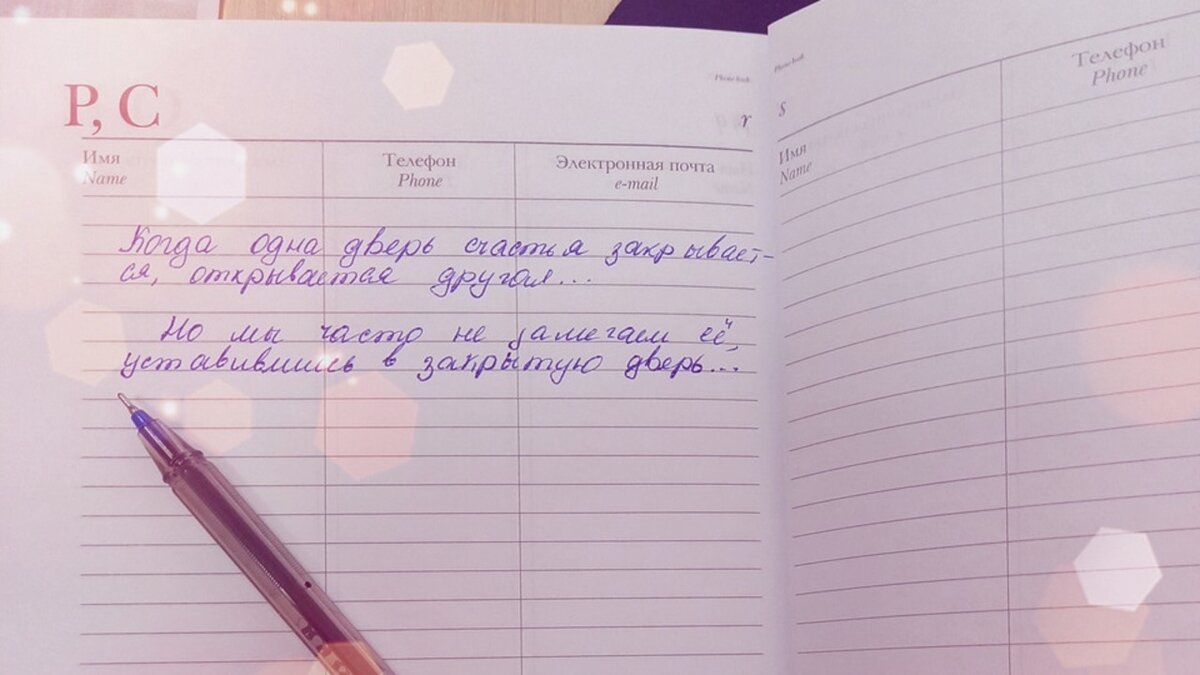 Phone book
Р, С
r
Имя
Name
Телефон
Phone
Электронная почта
e-mail
Когда одна дверь счастья закрывает-
ся, открывается другая...
Но мы часто не замечаем её,
уставившись в закрытую дверь...
Phone book
s
Имя
Name
Телефон
Phone